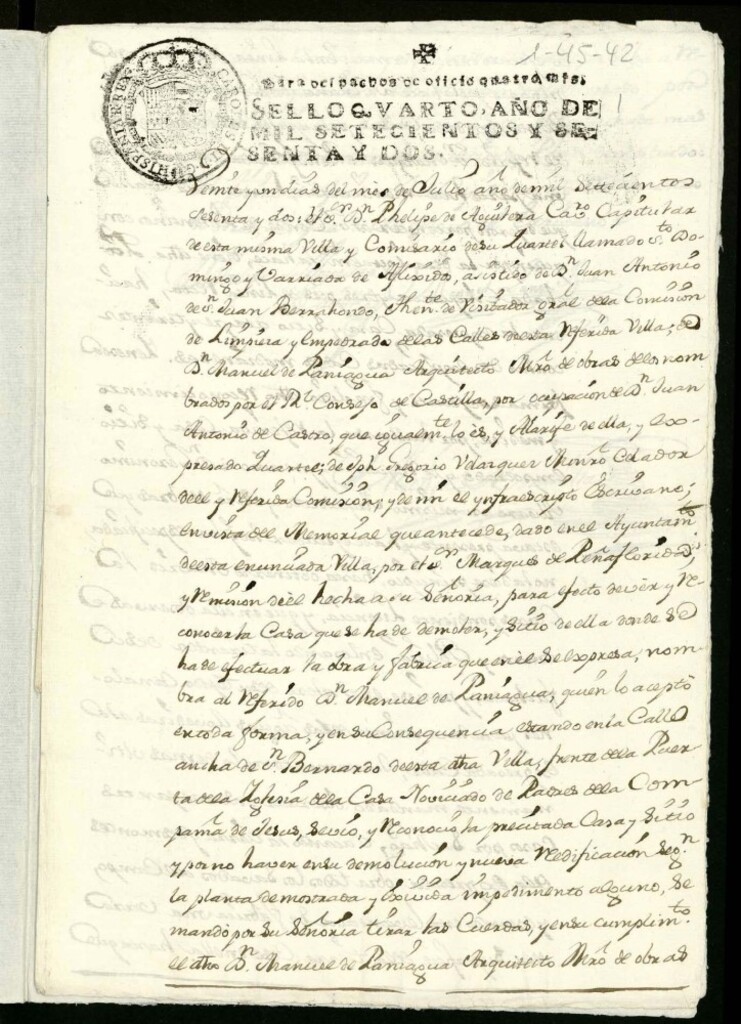 1-45-42
Para despachos de oficio quatro mrs.
SELLO QVARTO, AÑO DE
MIL SETECIENTOS Y SE-
SENTA Y DOS.
CAROLVS HISPANIAR REX
Veinte y un dias del mes de Julio año de mil settecientos
sesenta y dos; el Sr. Dn Phelipe de Aguilera Cavo. Capitular
de esta misma Villa y Comisario de su Quartel llamado Sto Do-
mingo y Varriada de Afligidos, asistido de Dn. Juan Antonio
de Sn. Juan Berrahondo, Thente. de Visitador gral de la Comision
de Limpieza y Empedrado de las Calles de esta referida Villa; de
Dn. Manuel de Paniagua Arquitecto Mro. de obras de los nom
brados por el Rl. Consejo de Castilla, por ocupacion de Dn. Juan
Antonio de Castro, que igualmte. lo es, y Alarife de ella, y ex-
presado Quartel; de Jph Gregorio Velazquez Monro. Celador
de el y referida Comision; y de mi el ynfraescripto Escrivano;
en vista del Memorial que antecede, dado en el Ayuntamto
de esta enunciada Villa, por el Sr. Marques de Peñaflorida;
y remision de el hecha a su Señoria, para efecto de ver y re-
conocer la Casa que se ha de demoler, y sitio de ella donde se
ha de efectuar la obra y fabrica que en el se expresa, nom-
bra al referido Dn. Manuel de Paniagua, quien lo aceptò
en toda forma, y en su Consequencia estando en la Calle
ancha de Sn. Bernardo de esta dha Villa, frente de la Puer-
ta de la Iglesia de la Casa Noviciado de Padres de la Com-
pania de Jesus, se vio, y reconociò la precitada Casa y Sitio
y por no haver en su demolucion y nueva redificacion segn.
la planta demostrada y exivida impedimento alguno, se
mandò por su Señoria tirar las Cuerdas, y en su cumplimto.
el dho Dn. Manuel de Paniagua Arquitecto Mro. de obras